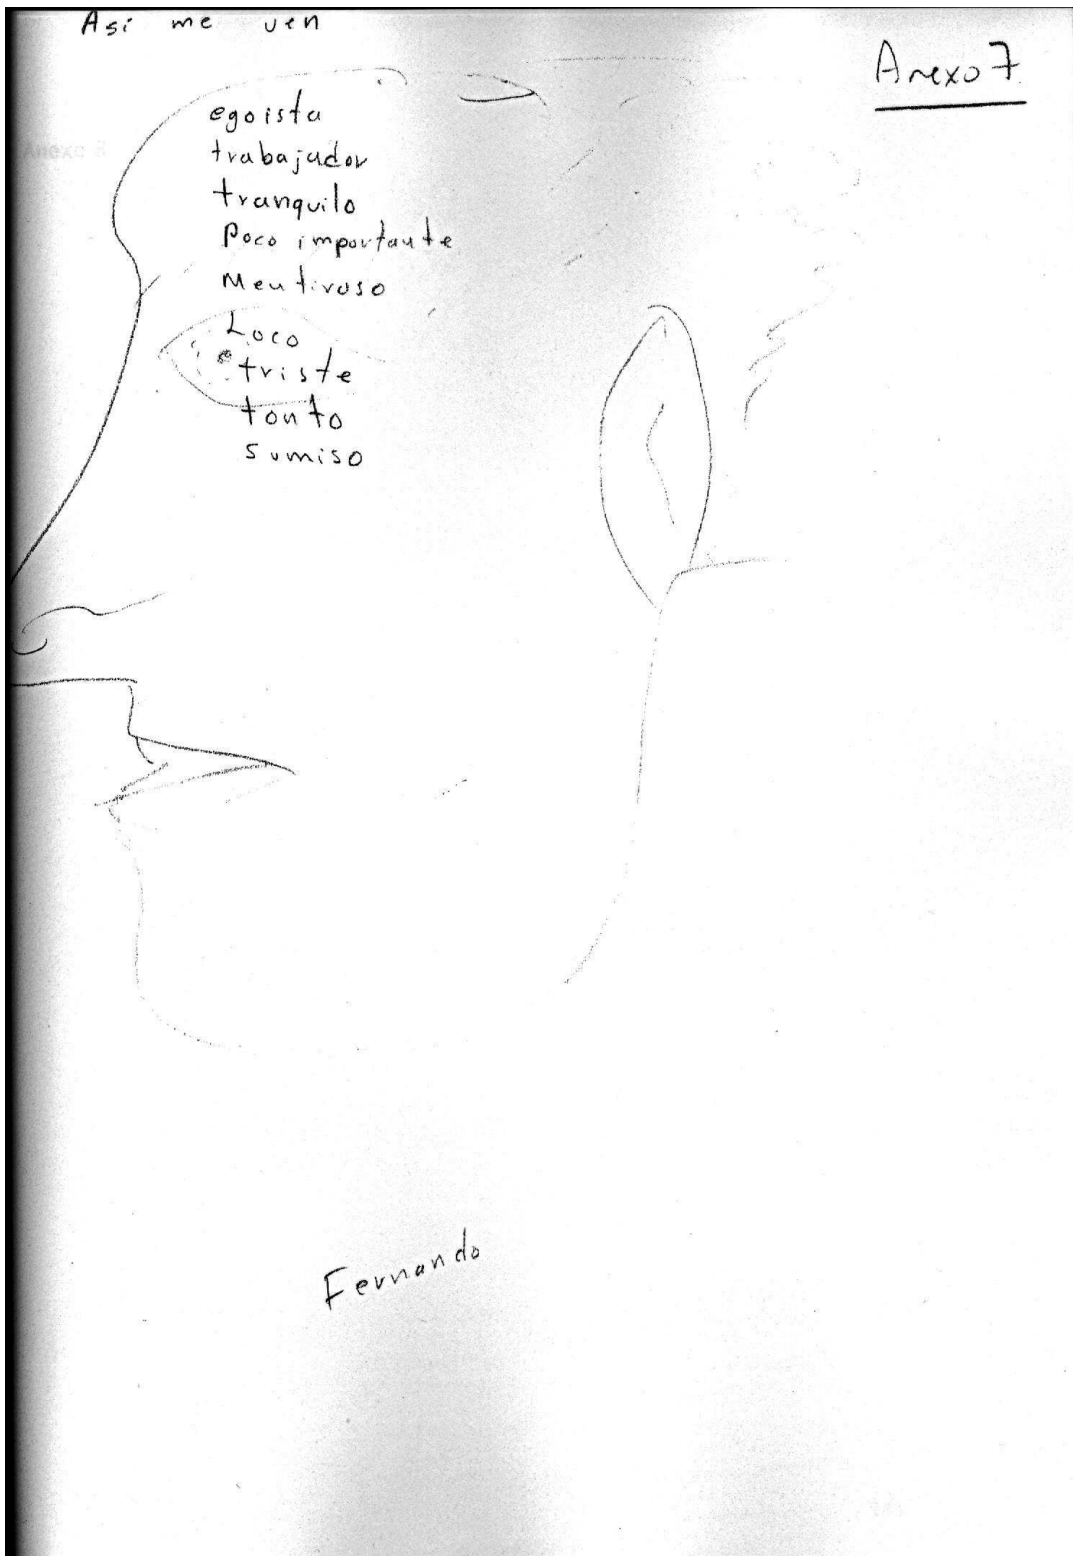 Asi me ven
Anexo 7
egoista
trabajador
tranquilo
Poco importante
Mentiroso
Loco
triste
tonto
sumiso
Fernando